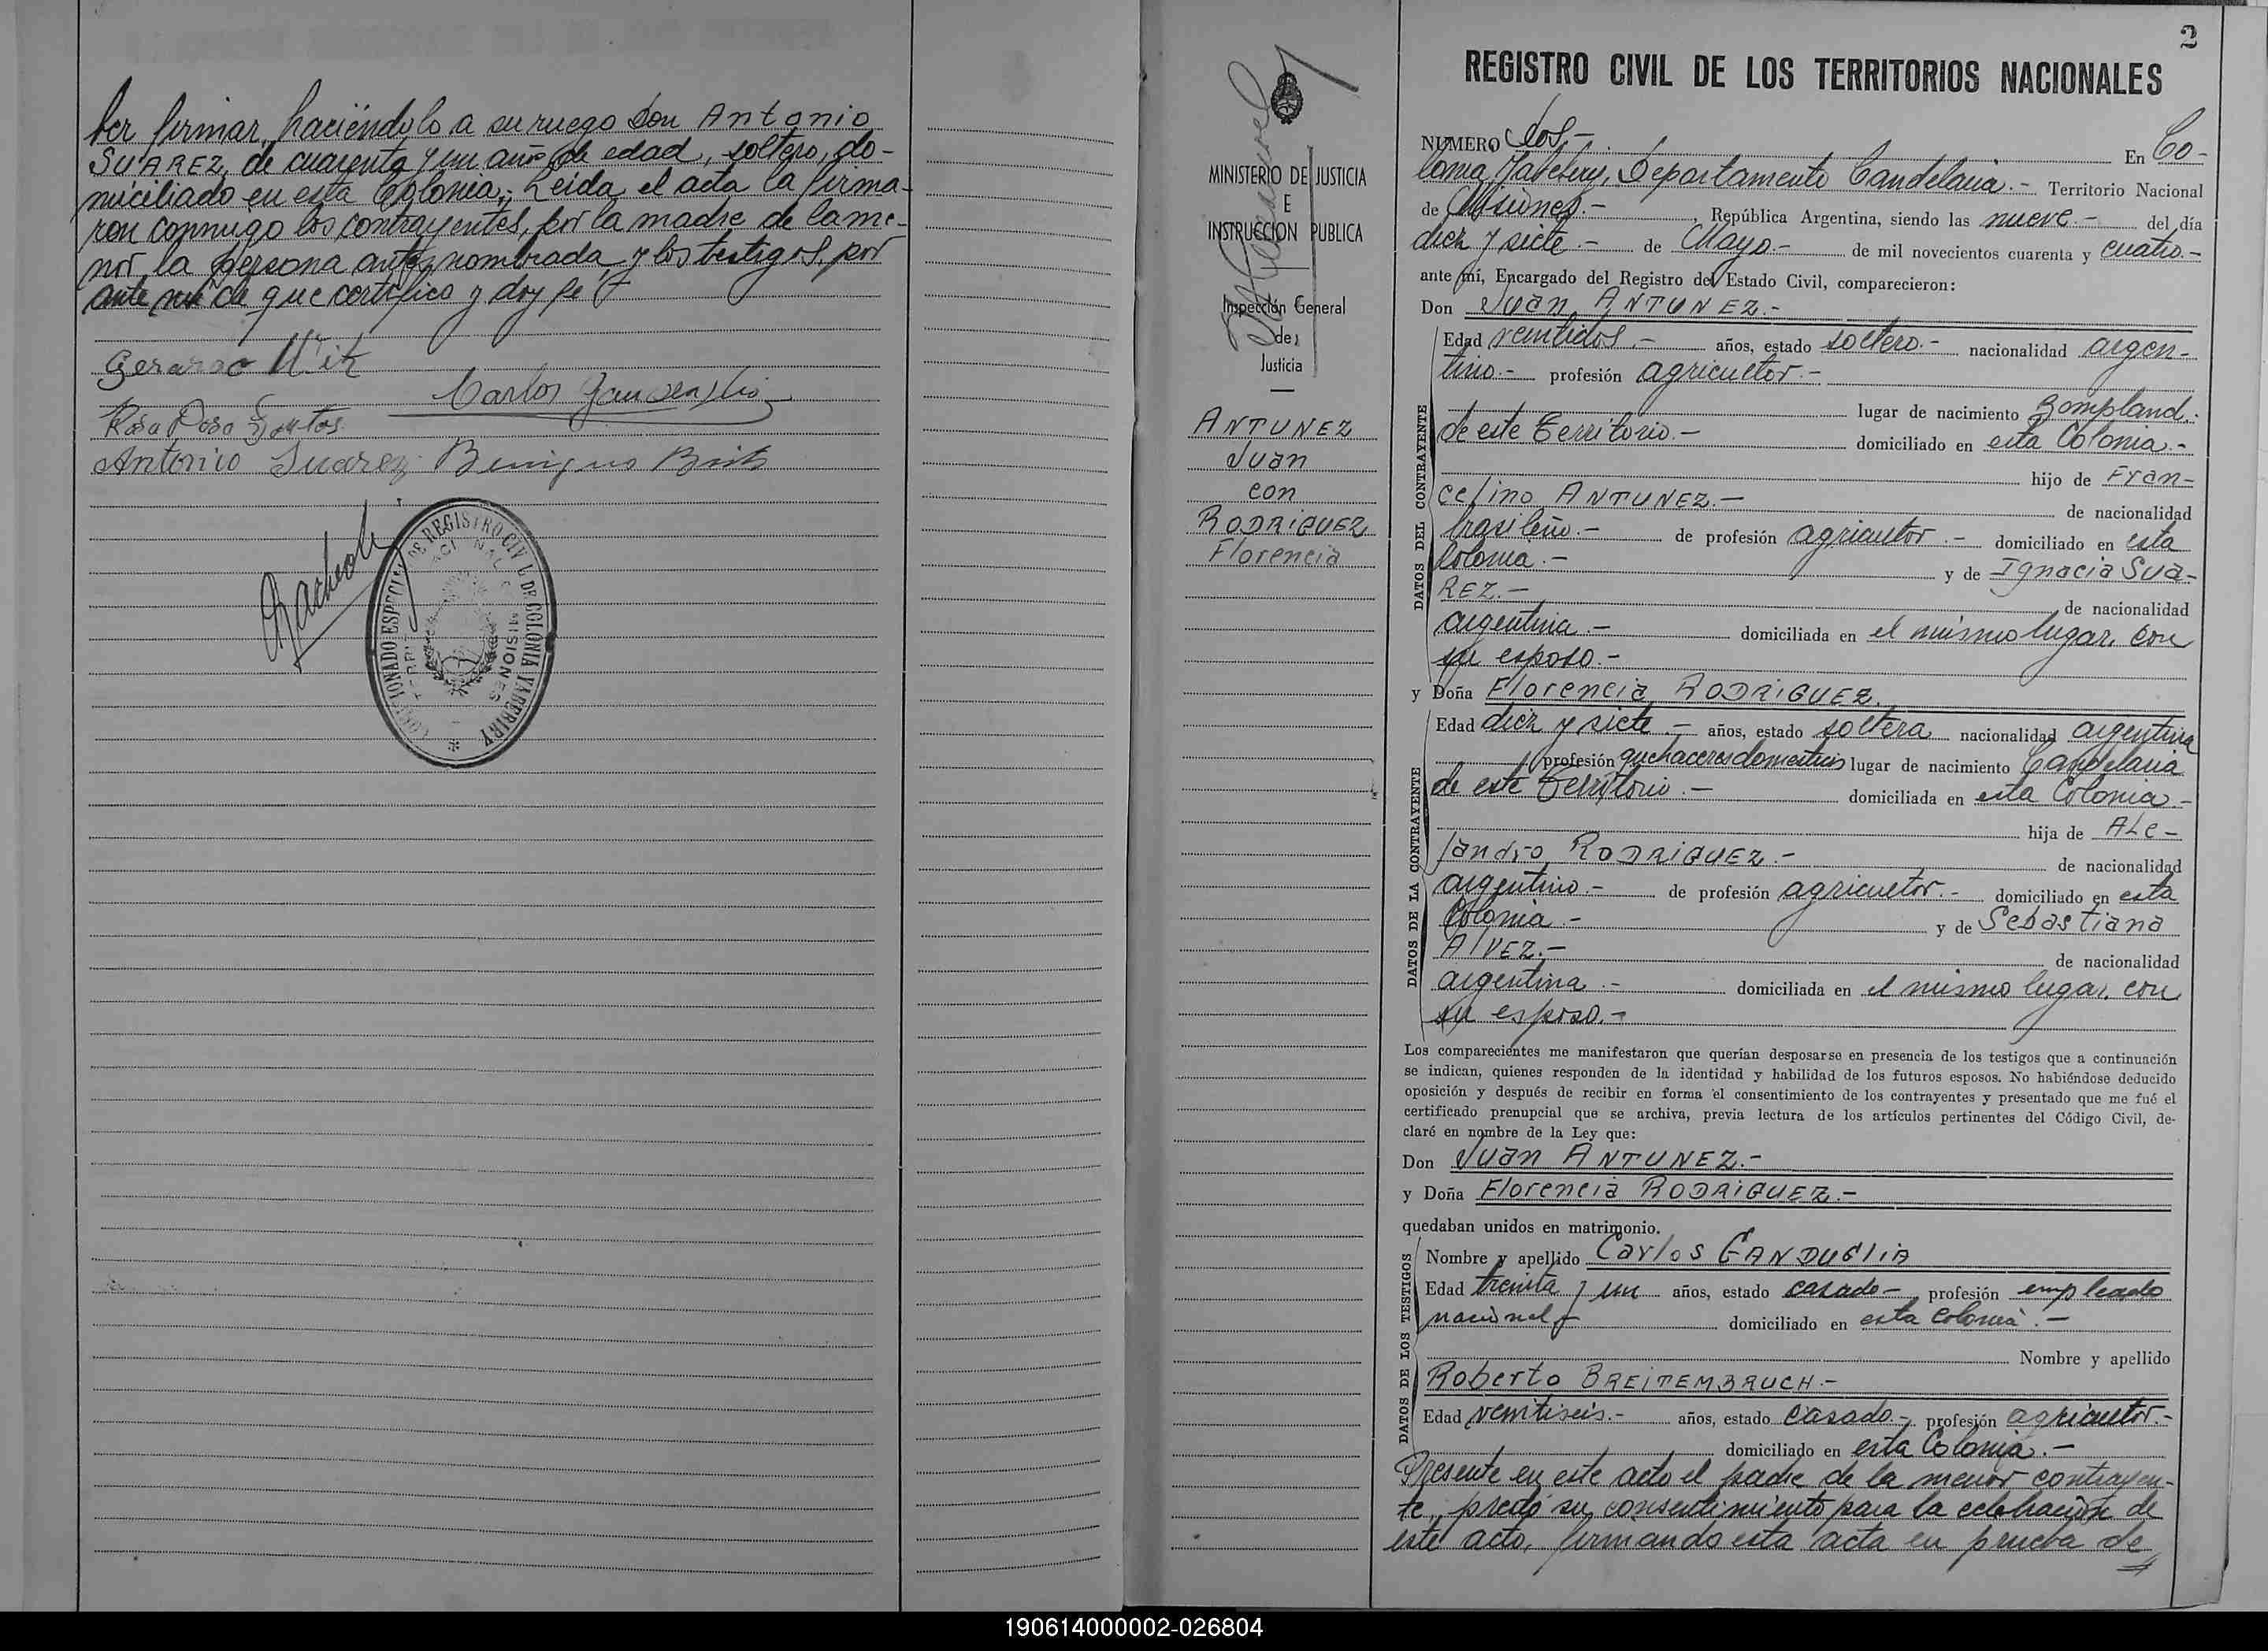 ber firmar, haciéndolo a su ruego Don Antonio
SUAREZ, de cuarenta y un años de edad, soltero, do-
miciliado en esta Colonia.- Leida el acta la firma-
ron conmigo los contrayentes, por la madre de la me-
nor, la persona antes nombrada y los testigos, por
ante mi de que certifico y doy fe
Gerardo
Carlos Ganduglia
Rosa
Antonio Suarez Benigno Brits
COMISIONADO ESPECIAL DE REGISTRO CIVIL DE COLONIA YABEBIRY
MISIONES
2
REGISTRO CIVIL DE LOS TERRITORIOS NACIONALES
MINISTERIO DE JUSTICIA
E
INSTRUCCION PUBLICA
Inspección General
de
Justicia
ANTUNEZ
Juan
con
RODRIGUEZ
Florencia
NUMERO Dos.- En Co-
lonia Yabebiry, Departamento Candelaria.- Territorio Nacional
de Misiones.- , República Argentina, siendo las nueve.- del día
diez y siete.- de Mayo.- de mil novecientos cuarenta y cuatro.-
ante mí, Encargado del Registro del Estado Civil, comparecieron:
Don Juan ANTUNEZ.-
DATOS DEL CONTRAYENTE
Edad veintidos.- años, estado soltero.- nacionalidad argen-
tino.- profesión agricultor.-
lugar de nacimiento Bompland.
de este Territorio.- domiciliado en esta Colonia.-
hijo de Fran-
celino ANTUNEZ.- de nacionalidad
brasileño.- de profesión agricultor.- domiciliado en esta
Colonia.- y de Ignacia SUA-
REZ.- de nacionalidad
argentina.- domiciliada en el mismo lugar, con
su esposo.-
y Doña Florencia RODRIGUEZ.
DATOS DE LA CONTRAYENTE
Edad diez y siete.- años, estado soltera nacionalidad argentina
profesión quehaceres domesticos lugar de nacimiento Candelaria
de este Territorio.- domiciliada en esta Colonia.-
hija de ALe-
jandro RODRIGUEZ.- de nacionalidad
argentino.- de profesión agricultor.- domiciliado en esta
Colonia.- y de Sebastiana
AlVEZ.- de nacionalidad
argentina.- domiciliada en el mismo lugar, con
su esposo.-
Los comparecientes me manifestaron que querían desposarse en presencia de los testigos que a continuación
se indican, quienes responden de la identidad y habilidad de los futuros esposos. No habiéndose deducido
oposición y después de recibir en forma el consentimiento de los contrayentes y presentado que me fué el
certificado prenupcial que se archiva, previa lectura de los artículos pertinentes del Código Civil, de-
claré en nombre de la Ley que:
Don Juan ANTUNEZ.-
y Doña Florencia RODRIGUEZ.-
quedaban unidos en matrimonio.
DATOS DE LOS TESTIGOS
Nombre y apellido Carlos GANDUGLIA
Edad treinta y un años, estado casado- profesión empleado
nacional domiciliado en esta Colonia.-
Nombre y apellido
Roberto BREITEMBRUCH.-
Edad veintiseis.- años, estado casado.- profesión agricultor.-
domiciliado en esta Colonia.-
Presente en este acto el padre de la menor contrayen-
te, prestó su consentimiento para la celebración de
este acto, firmando esta acta en prueba de
190614000002-026804